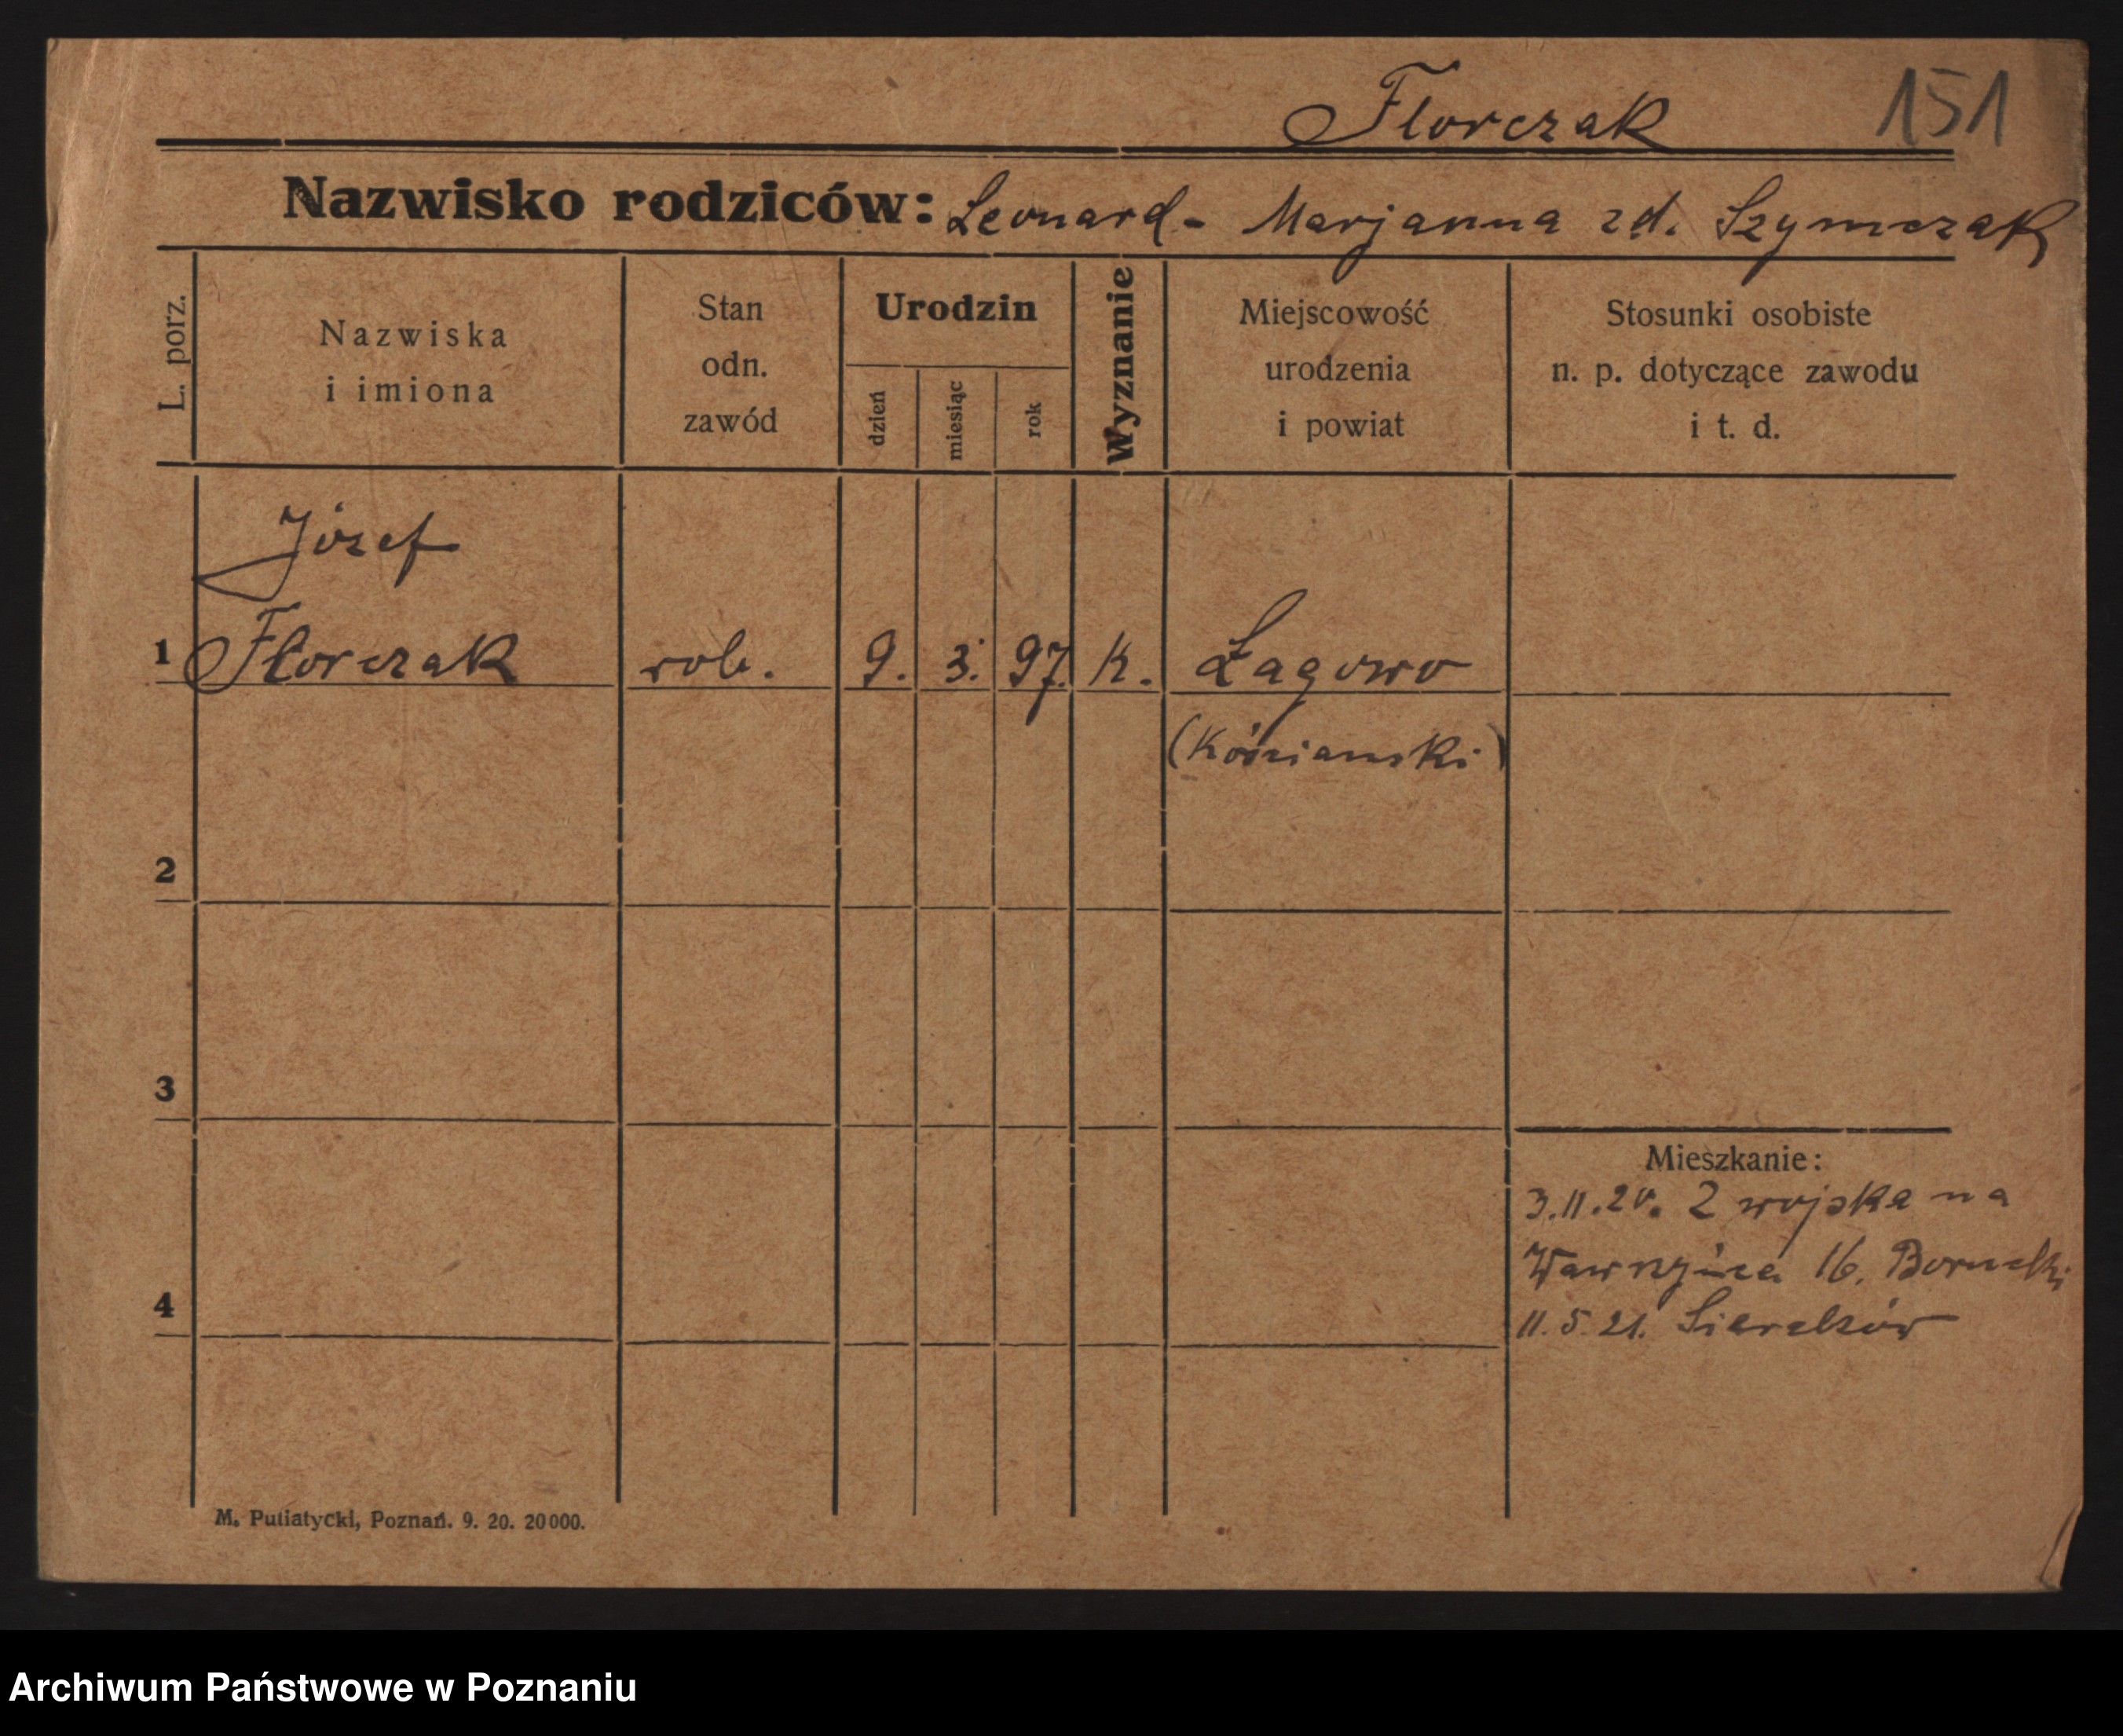 Florczak 151
Nazwisko rodziców: Leonard - Marjanna zd. Szymczak
L. porz.
Nazwiska
i imiona
Stan
odn.
zawód
Urodzin
dzień
miesiąc
rok
Wyznanie
Miejscowość
urodzenia
i powiat
Stosunki osobiste
n. p. dotyczące zawodu
i t. d.
Józef
1 Florczak rob. 9. 3. 97. K. Łagowo
(Kościański)
2
3
4
Mieszkanie:
3.11.20. Z wojska na
Wawrzyńca 16.
11.5.21. Sieraków
M. Putiatycki, Poznań. 9. 20. 20000.
Archiwum Państwowe w Poznaniu